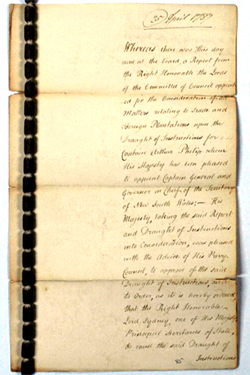 25 April 1787
Whereas there was this day
read at the Board, a Report from
the Right Honorable the Lords
of the Committee of Council appoint
ed for the Consideration of all
Matters relating to Trade and
Foreign Plantations upon the
Draught of Instructions for
Captain Arthur Phillip whom
His Majesty has been pleased
to appoint Captain General and
Governor in Chief of the Territory
of New South Wales;— His
Majesty, taking the said Report
and Draught of Instructions
into Consideration, was pleased
with the Advice of His Privy
Council, to approve of the said
Draught of Instructions, and
to Order, as it is hereby ordered
that the Right Honorable
Lord Sydney, one of His Majesty's
Principal Secretarys of State,
do cause the said Draught of
Instructions